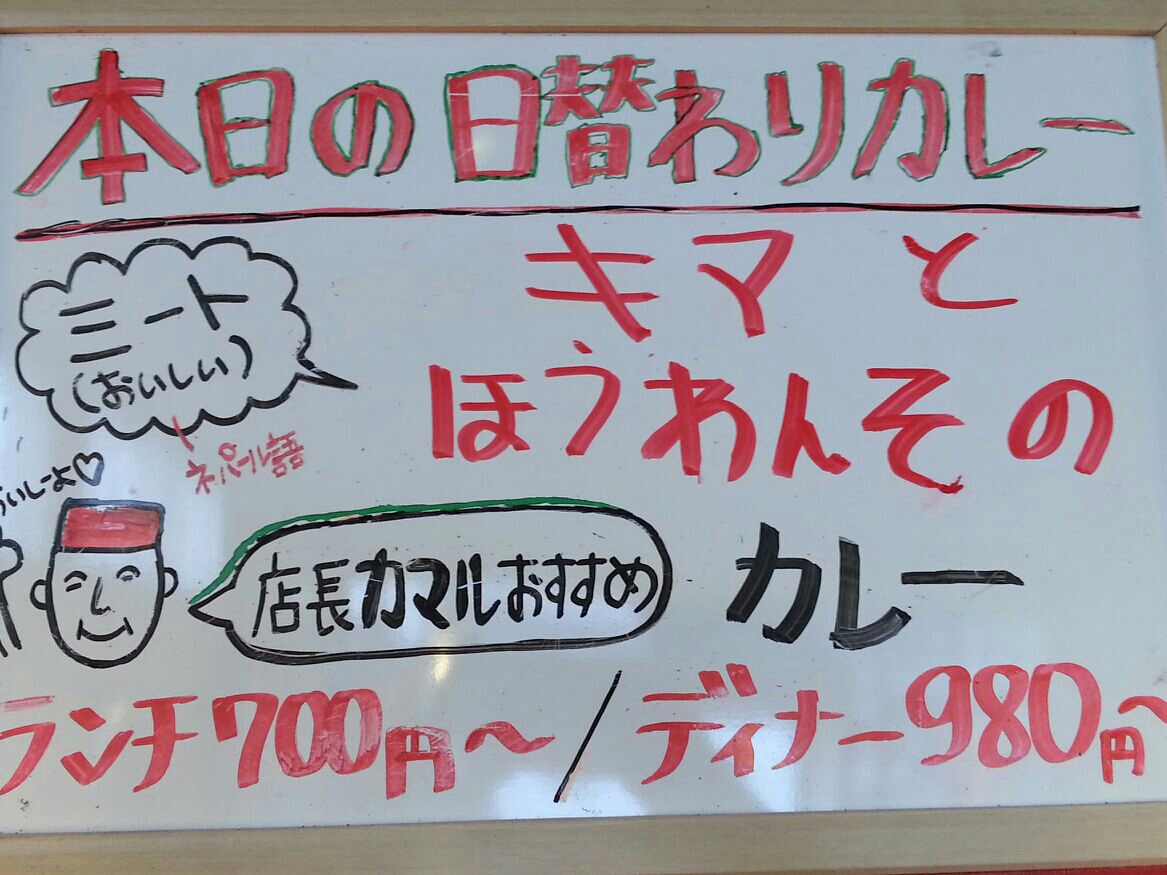 本日の日替わりカレー
キマと
ミート
(おいしい)
ネパール語
ほうわんその
いしーよ♡
店長カマルおすすめ
カレー
ランチ700円〜/ディナー980円〜